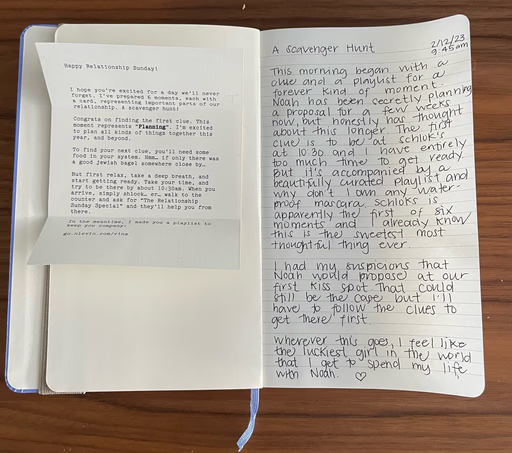 Happy Relationship Sunday!
I hope you're excited for a day we'll never
forget. I've prepared 6 moments, each with
a card, representing important parts of our
relationship. A scavenger hunt!
Congrats on finding the first clue. This
moment represents "Planning". I'm excited
to plan all kinds of things together this
year, and beyond.
To find your next clue, you'll need some
food in your system. Hmm… if only there was
a good Jewish bagel somewhere close by…
But first relax, take a deep breath, and
start getting ready. Take your time, and
try to be there by about 10:30am. When you
arrive, simply shlock… er… walk to the
counter and ask for "The Relationship
Sunday Special" and they'll help you from
there.
In the meantime, I made you a playlist to
keep you company:
go.nlevin.com/
A Scavenger Hunt
2/12/23
9:45am
This morning began with a
clue and a playlist for a
forever kind of moment.
Noah has been secretly planning
a proposal for a few weeks
now, but honestly has thought
about this longer. The first
clue is to be at schlok's
at 10:30 and I have entirely
too much time to get ready.
But it's accompanied by a
beautifully curated playlist and
why don't I own any water-
proof mascara. Schloks is
apparently the first of six
moments and I already know
this is the sweetest most
thoughtful thing ever.
I had my suspicions that
Noah would propose at our
first kiss spot. That could
still be the case but I'll
have to follow the clues to
get there first.
Wherever this goes, I feel like
the luckiest girl in the world
that I get to spend my life
with Noah. ♡